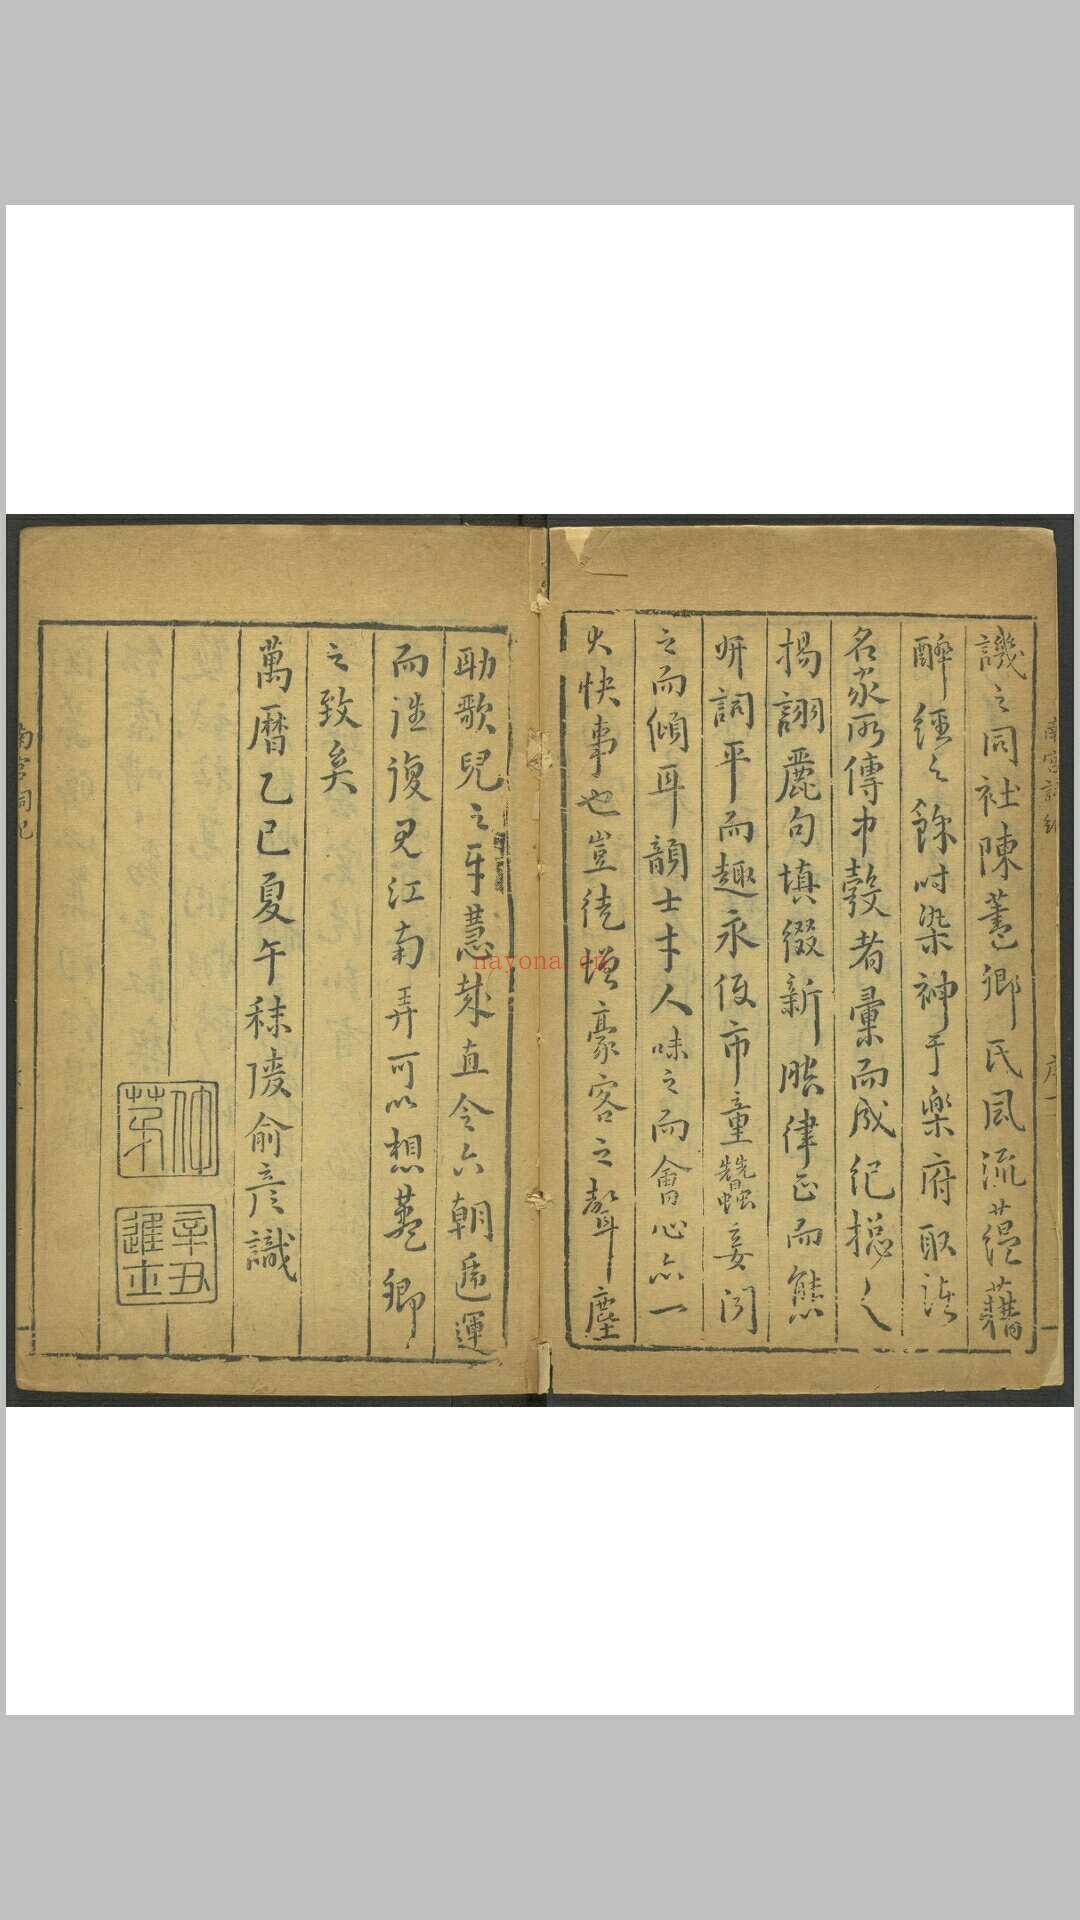 譏之同社陳藎卿氏風流蘊藉
醉經之餘時染神于樂府取諸
名家所傳中彀者彙而成紀揔之
揚詡麗句填綴新腔律正而態
妍詞平而趣永使市童蠶妾聞
之而傾耳韻士才人味之而會心亦一
大快事也豈徒增豪客之聲塵
助歌兒之牙慧哉直令六朝風運
而
復見江南弄可以想藎卿
之致矣
萬曆乙巳夏午秣陵俞彥識
仲茅
辛丑進士
南宮詞紀
nayona.cn